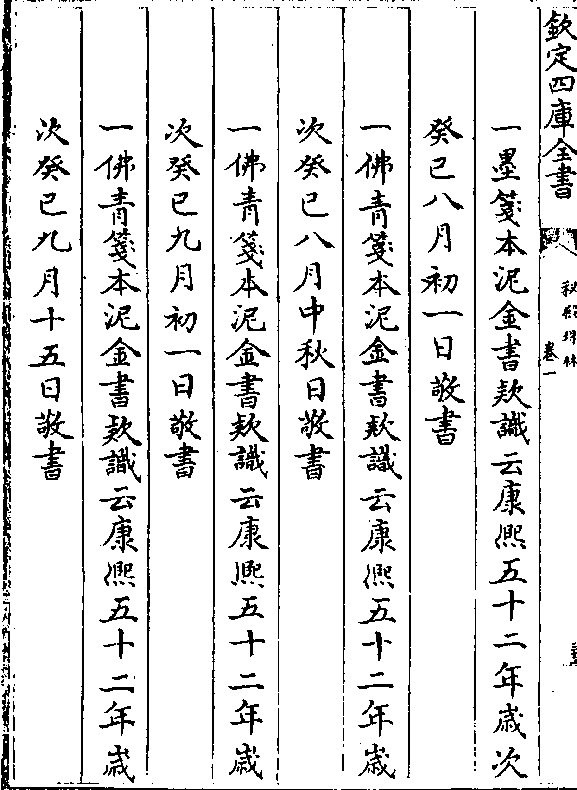 欽定四庫全書
秘殿珠林
卷一
一墨箋本泥金書款識云康熙五十二年歲次
癸巳八月初一日敬書
一佛青箋本泥金書款識云康熙五十二年歲
次癸巳八月中秋日敬書
一佛青箋本泥金書款識云康熙五十二年歲
次癸巳九月初一日敬書
一佛青箋本泥金書款識云康熙五十二年歲
次癸巳九月十五日敬書